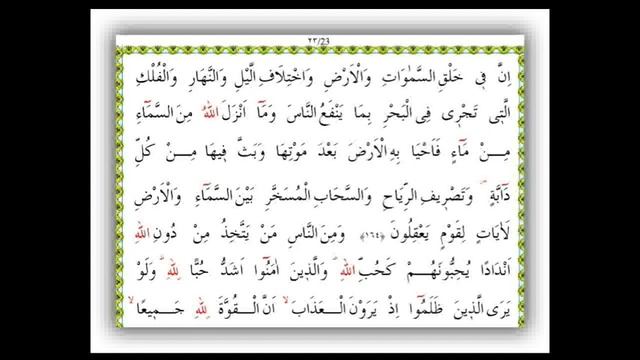 ٢٣/23
اِنَّ ف۪ي خَلْقِ السَّمٰوَاتِ وَالْاَرْضِ وَاخْتِلَافِ الَّيْلِ وَالنَّهَارِ وَالْفُلْكِ
الَّت۪ي تَجْر۪ي فِي الْبَحْرِ بِمَا يَنْفَعُ النَّاسَ وَمَٓا اَنْزَلَ اللّٰهُ مِنَ السَّمَٓاءِ
مِنْ مَٓاءٍ فَاَحْيَا بِهِ الْاَرْضَ بَعْدَ مَوْتِهَا وَبَثَّ ف۪يهَا مِنْ كُلِّ
دَٓابَّةٍۖ وَتَصْر۪يفِ الرِّيَاحِ وَالسَّحَابِ الْمُسَخَّرِ بَيْنَ السَّمَٓاءِ وَالْاَرْضِ
لَاٰيَاتٍ لِقَوْمٍ يَعْقِلُونَ ﴿١٦٤﴾ وَمِنَ النَّاسِ مَنْ يَتَّخِذُ مِنْ دُونِ اللّٰهِ
اَنْدَادًا يُحِبُّونَهُمْ كَحُبِّ اللّٰهِۜ وَالَّذ۪ينَ اٰمَنُٓوا اَشَدُّ حُبًّا لِلّٰهِۜ وَلَوْ
يَرَى الَّذ۪ينَ ظَلَمُٓوا اِذْ يَرَوْنَ الْعَذَابَۙ اَنَّ الْقُوَّةَ لِلّٰهِ جَم۪يعًاۙ